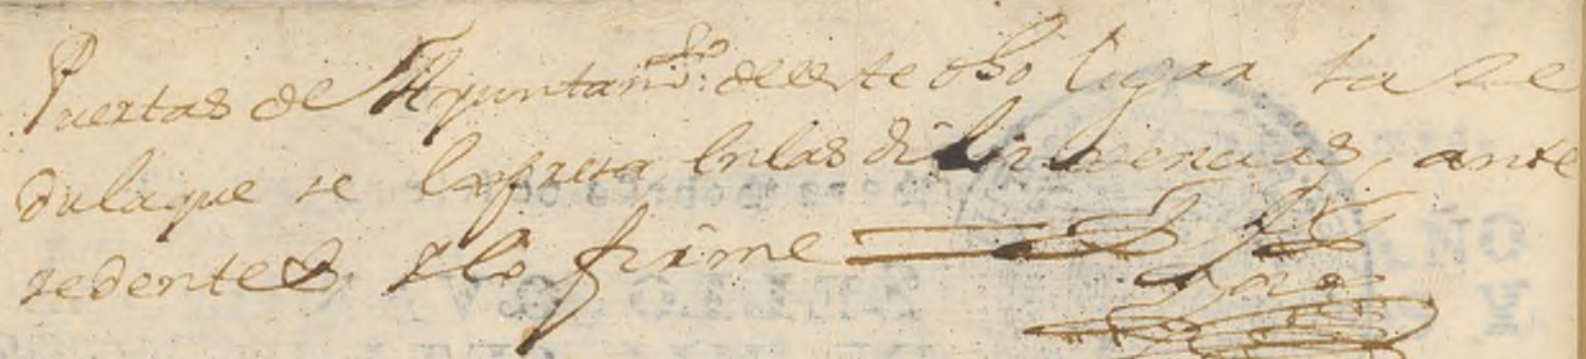 Puertas de el Ayuntamto: de este dho lugar la se
dula que se Expresa En las diligencias, ante
sedentes, Y lo firme